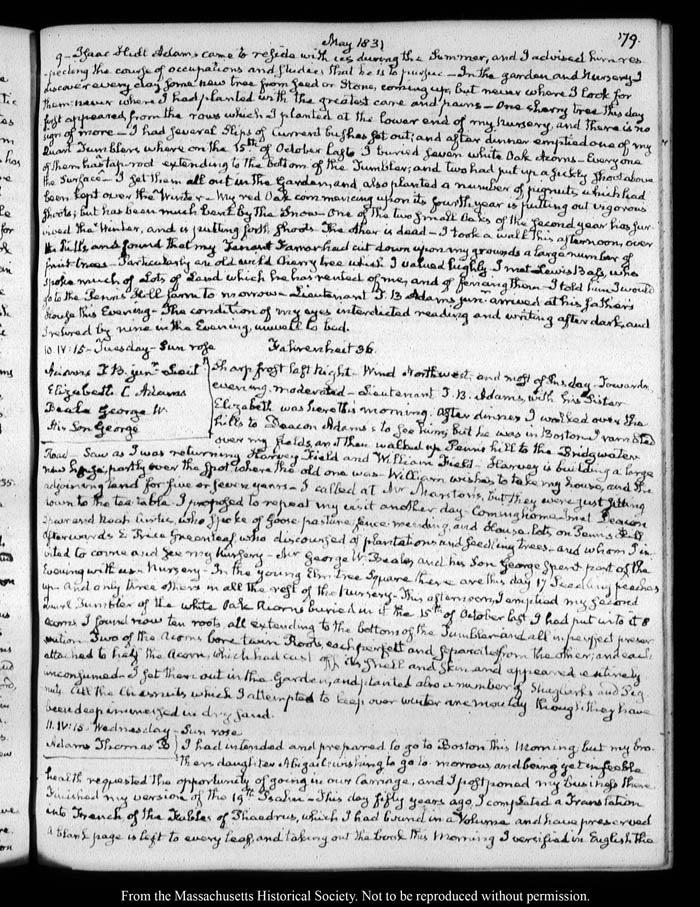 May 1831
179.
9 – Isaac Hull Adams came to reside with us during the Summer, and I advised him res-
-pecting the course of occupations and studies that he is to pursue – In the garden and Nursery I
discover every day some new tree from seed or Stone, coming up, but never where I look for
them: never where I had planted with the greatest care and pains – One cherry tree this day
first appeared, from the rows which I planted at the lower end of my Nursery, and there is no
sign of more – I had several Slips of Currant bushes set out; and after dinner emptied one of my
Quart Tumblers where on the 15th of October last I buried seven white Oak Acorns – Every one
of them has tap-root extending to the bottom of the Tumbler; and two had put up a sickly shoot above
the surface – I set them all out in the Garden, and also planted a number of pignuts, which had
been kept over the Winter – My red Oak commencing upon its fourth year is putting out vigorous
shoots; but has been much bent by the Snow – One of the two small Oaks of the second year has sur-
vived the Winter, and is putting forth shoots. The other is dead – I took a walk this afternoon, over
the hills, and found that my Tenant Farrar had cut down upon my grounds a large number of
fruit trees – Particularly an old wild Cherry tree which I valued highly. I met Lewis Bass, who
spoke much of Lots of Land which he has rented of me, and of fencing them – I told him I would
go to the Penn's Hill farm to morrow – Lieutenant T. B. Adams junr. arrived at his father's
house this Evening – The condition of my eyes interdicted reading and writing after dark, and
I retired by nine in the Evening, unwell to bed.
10. IV:15 – Tuesday – Sun rose Fahrenheit 36.
Adams T. B. junr. Lieut
Elizabeth C. Adams
Beale George W.
His Son George
Sharp frost last Night – Wind Northwest, and most of this day – Towards
evening, moderated – Lieutenant T. B. Adams, with his Sister
Elizabeth was here this morning. After dinner I walked over the
hills to Deacon Adams's to see him; but he was in Boston. I rambled
over my fields, and then walked up Penn's hill to the Bridgwater
Road – Saw as I was returning Harvey Field and William Field – Harvey is building a large
new house, partly over the spot where the old one was – William wishes to take my house, and the
adjoining land for five or seven years – I called at Mr Marston's, but they were just sitting
down to the tea table. I proposed to repeat my visit another day – Coming home I met Deacon
Spear and Noah Curtis, who spoke of Goose pasture, fence mending, and House lots on Penn's Hill
afterwards E. Price Greenleaf, who discoursed of plantations and seedling trees – and whom I in-
vited to come and see my Nursery – Mr George W. Beale, and his Son George spent part of the
Evening with us – Nursery – In the young Elm tree Square there are this day 17 seedling peaches
up – And only three others in all the rest of the Nursery – This afternoon, I emptied my second
Quart Tumbler of the white Oak Acorns buried in it the 15th of October last. I had put into it 8
acorns. I found now ten roots all extending to the bottom of the Tumbler and all in perfect preser-
vation. Two of the Acorns bore twin Roots, each perfect and separate from the other; and each
attached to half the Acorn, which had cast off its Shell and Skin and appeared entirely
unconsumed – I set them out in the Garden, and planted also a number of Shagbarks and Pig
nuts. All the Chesnuts which I attempted to keep over winter are mouldy though they have
been deep immersed in dry sand.
11. IV:15. Wednesday – Sun rose
Adams Thomas B
I had intended and prepared to go to Boston this Morning; but my bro-
thers daughter Abigail wishing to go to morrow, and being yet in feeble
health requested the opportunity of going in our Carriage, and I postponed my business there
Finished my version of the 19th Psalm – This day fifty years ago, I completed a Translation
into French of the Fables of Phaedrus, which I had bound in a Volume and have preserved
a blank page is left to every leaf, and taking out the book this Morning I versified in English the
From the Massachusetts Historical Society. Not to be reproduced without permission.